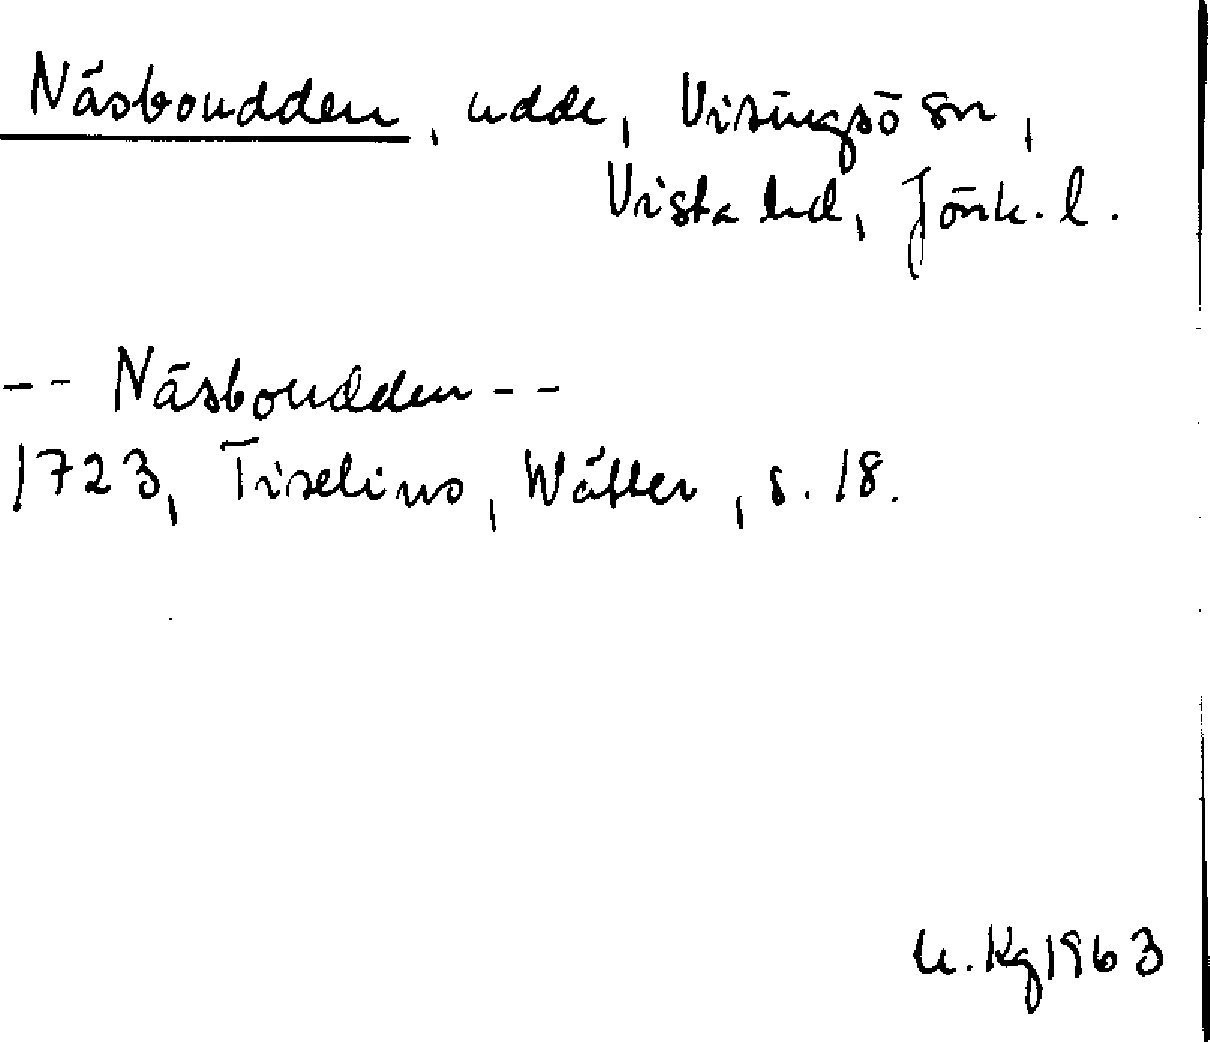 Näsboudden, udde, Visingsö sn,
Vista hd, Jönk. l.
-- Näsboudden --
1723, Tiselius, Wätter, s. 18.
U. Kg 1963